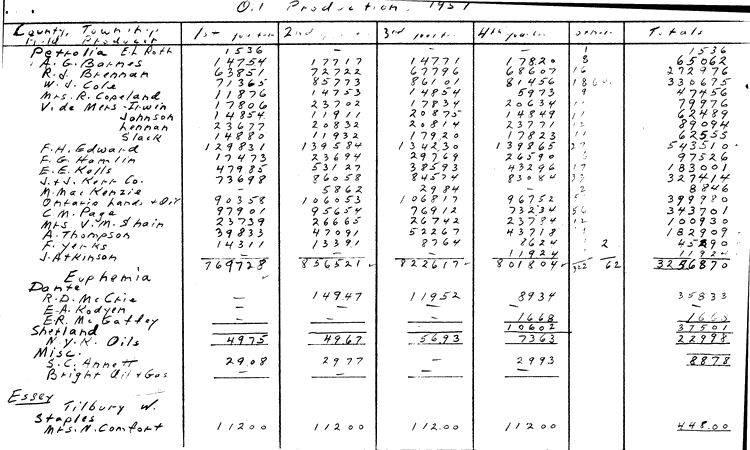 Oil Production 1951
County, Township Field Producer 1st quarter 2nd quarter 3rd quarter 4th quarter Totals
Petrolia E.L. Roth 1536 — — — 1 1536
A. G. Barnes 14754 17717 14771 17820 8 65062
R. J. Brennan 63851 72722 67796 68607 16 272976
W. J. Cole 71365 85773 86101 81456 330675
Mrs. R. Copeland 11876 14753 14854 5973 9 47456
V. de Mers-Irwin 17806 23702 17834 20634 11 79976
Johnson 14854 11911 20875 14849 11 62489
Lennan 23677 20832 20814 23771 12 89094
Slack 14880 11932 17920 17823 11 62555
F. H. Edward 129831 139584 134230 139865 27 543510
F. G. Hamlin 17473 23694 29769 26590 97526
E. E. Kells 47985 53127 38593 43296 183001
J. & J. Kerr Co. 73698 86058 84574 83084 327414
M. MacKenzie — 5862 2984 — 2 8846
Ontario Land & Oil 90358 106053 106817 96752 399980
C. M. Page 97901 95654 76912 73234 56 343701
Mrs. V. M. Shain 23739 26665 26742 23784 12 100930
A. Thompson 39833 47091 52267 43718 182909
F. Yerks 14311 13391 8764 8624 2 45090
J. Atkinson — — — 11924 11924
769728 856521 822617 801804 322 62 3256870
Euphemia
Dante
R. D. McCrie — 14947 11952 8934 35833
E. A. Kodyen — — — —
E. R. McGaffey — — — 1668 1668
10602 37501
Shetland
N. Y. K. Oils 4975 4967 5693 7363 22998
Misc.
S. C. Annett 2908 2977 — 2993 8878
Bright Oil & Gas — — — —
Essex
Tilbury W.
Staples
Mrs. N. Comfort 11200 11200 11200 11200 448.00